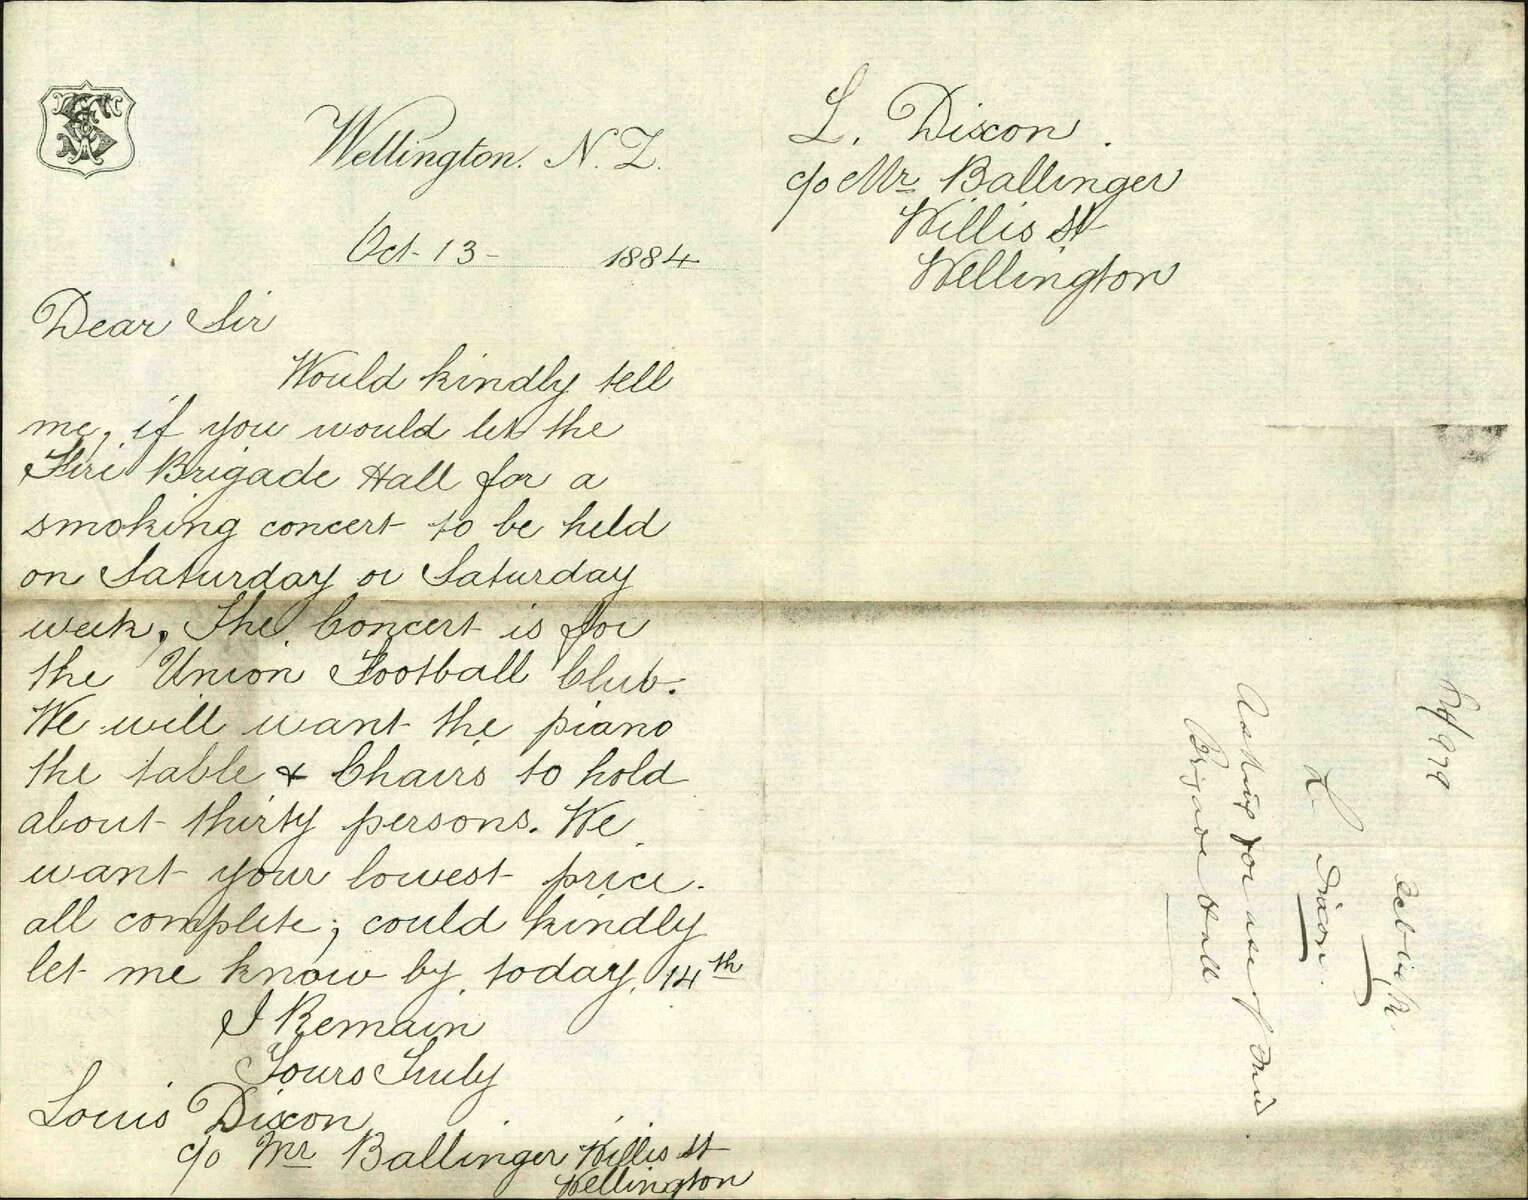 Wellington. N. Z.
Oct. 13 - 1884
Dear Sir
Would kindly tell
me, if you would let the
Firi Brigade Hall for a
smoking concert to be held
on Saturday or Saturday
week, The Concert is for
the Union Football Club.
We will want the piano
the table & Chairs to hold
about thirty persons. We
want your lowest price.
all complete; could kindly
let me know by today, 14th
I Remain
Yours Truly
Louis Dixon
c/o Mr Ballinger Willis St
Wellington
L. Dixon.
c/o Mr Ballinger
Willis St
Wellington
84/979
L Dixon.
Asking for use of Fire
Brigade Hall